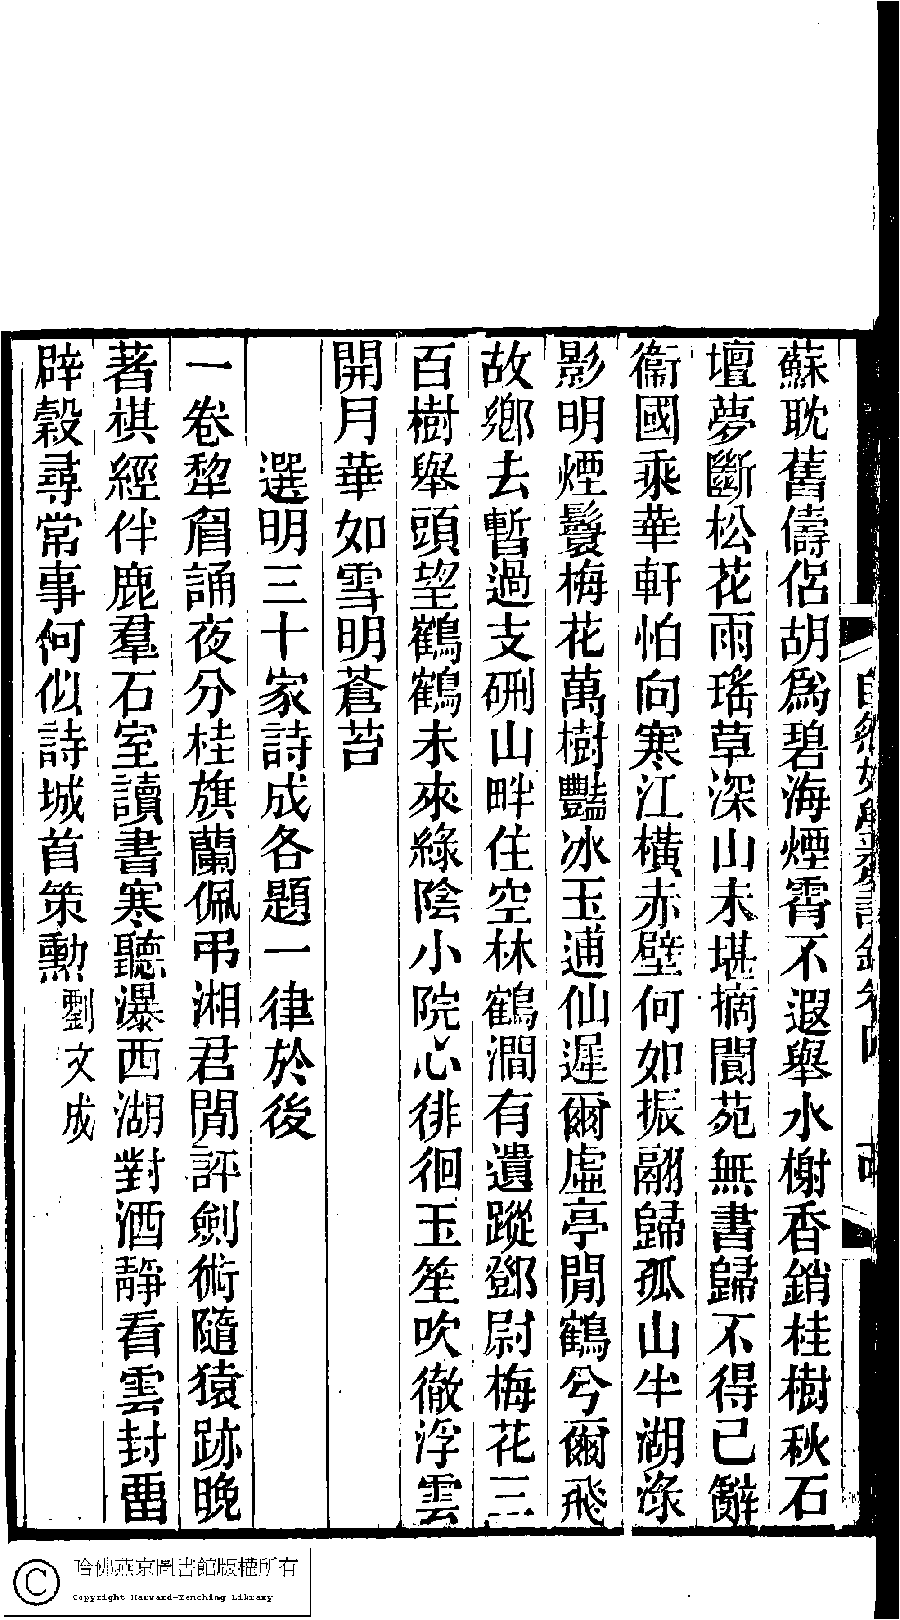 蘇耽舊儔侶胡爲碧海煙霄不遐舉水榭香銷桂樹秋石
壇夢斷松花雨瑤草深山未堪摘閬苑無書歸不得已辭
衞國乘華軒怕向寒江橫赤壁何如振翮歸孤山半湖淥
影明煙鬟梅花萬樹豔冰玉逋仙遲爾虛亭閒鶴兮爾飛
故鄉去暫過支硎山畔住空林鶴澗有遺蹤鄧尉梅花三
百樹舉頭望鶴鶴未來綠陰小院心徘徊玉笙吹徹浮雲
開月華如雪明蒼苔
選明三十家詩成各題一律於後
一卷犂眉誦夜分桂旗蘭佩弔湘君閒評劍術隨猿跡晚
著棋經伴鹿羣石室讀書寒聽瀑西湖對酒靜看雲封畱
辟穀尋常事何似詩城首策勳劉文成
自然好學齋詩鈔卷四
哈佛燕京圖書館版權所有
Copyright Harvard-Yenching Library